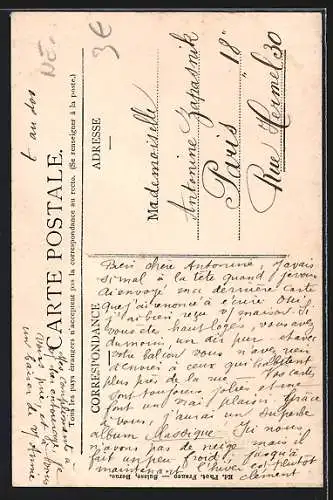 CARTE POSTALE.
Tous les pays étrangers n'acceptent pas la correspondance au recto. (Se renseigner à la poste.)
CORRESPONDANCE
ADRESSE
3€
Mademoiselle
Antonine Zapasnik
Paris 18e
Rue Hermel 30
Bien chère Antonine, j'avais
si mal à la tête quand je vous
ai envoyé ma dernière carte
que j'ai renoncé à écrire. Oui
j'ai bien reçu vo/maison. Si
vous des haut logés, vous avez
du moins un air pur et avec
votre balcon vous n'avez rien
à envier à ceux qui habitent
plus près de la rue. Tes cartes
sont toujours jolies et me
font un vrai plaisir. Grâce
à vous, j'aurai un superbe
album. Ici nous
n'avons pas de neige mais il
fait un peu froid, jusqu'à
maintenant l'hiver est plutôt
clément
un baiser de
Ed. Phot. Franco-Suisse, Berne.